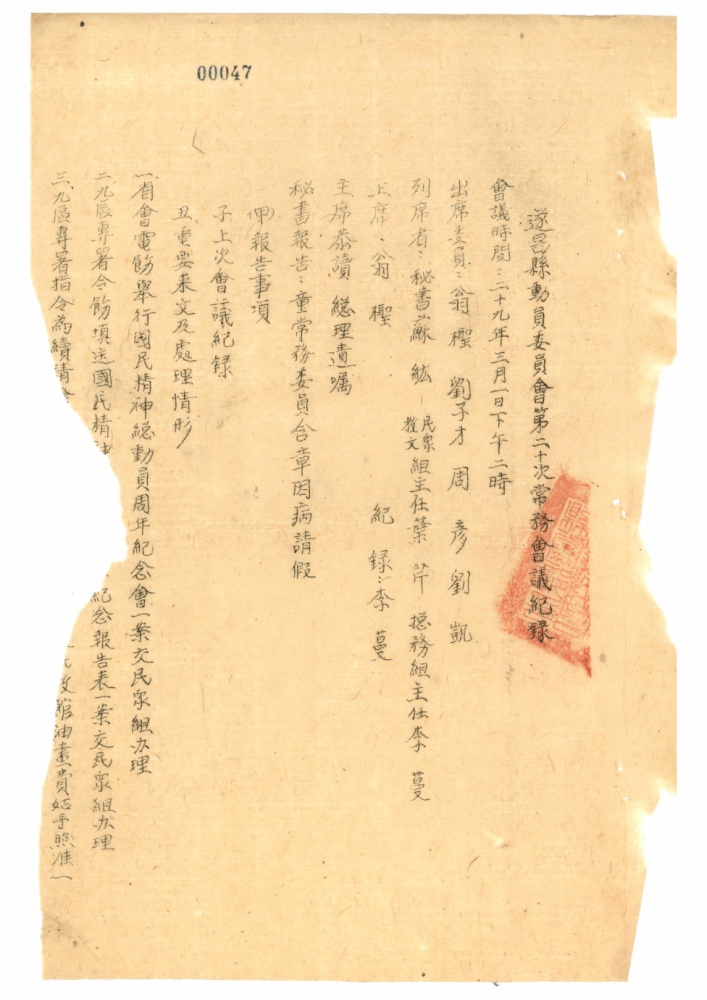 00047
遂邑縣動員委員會第二十次常務會議紀錄
會議時間：二十九年三月一日下午二時
出席委員：翁檉 劉子才 周彥 劉凱
列席者：秘書蘇紘 民眾教文組主任葉芹 總務組主任李蔓
主席：翁檉 紀錄：李蔓
主席恭讀 總理遺囑
秘書報告：童常務委員合章因病請假
甲報告事項
子上次會議紀錄
丑重要來文及處理情形
一、省會電飭舉行國民精神總動員周年紀念會一案交民眾組办理
二、九區專署令飭填送國民精神 紀念報告表一案交民眾組办理
三、九區專署指令為續請 館油畫費姑予照准一